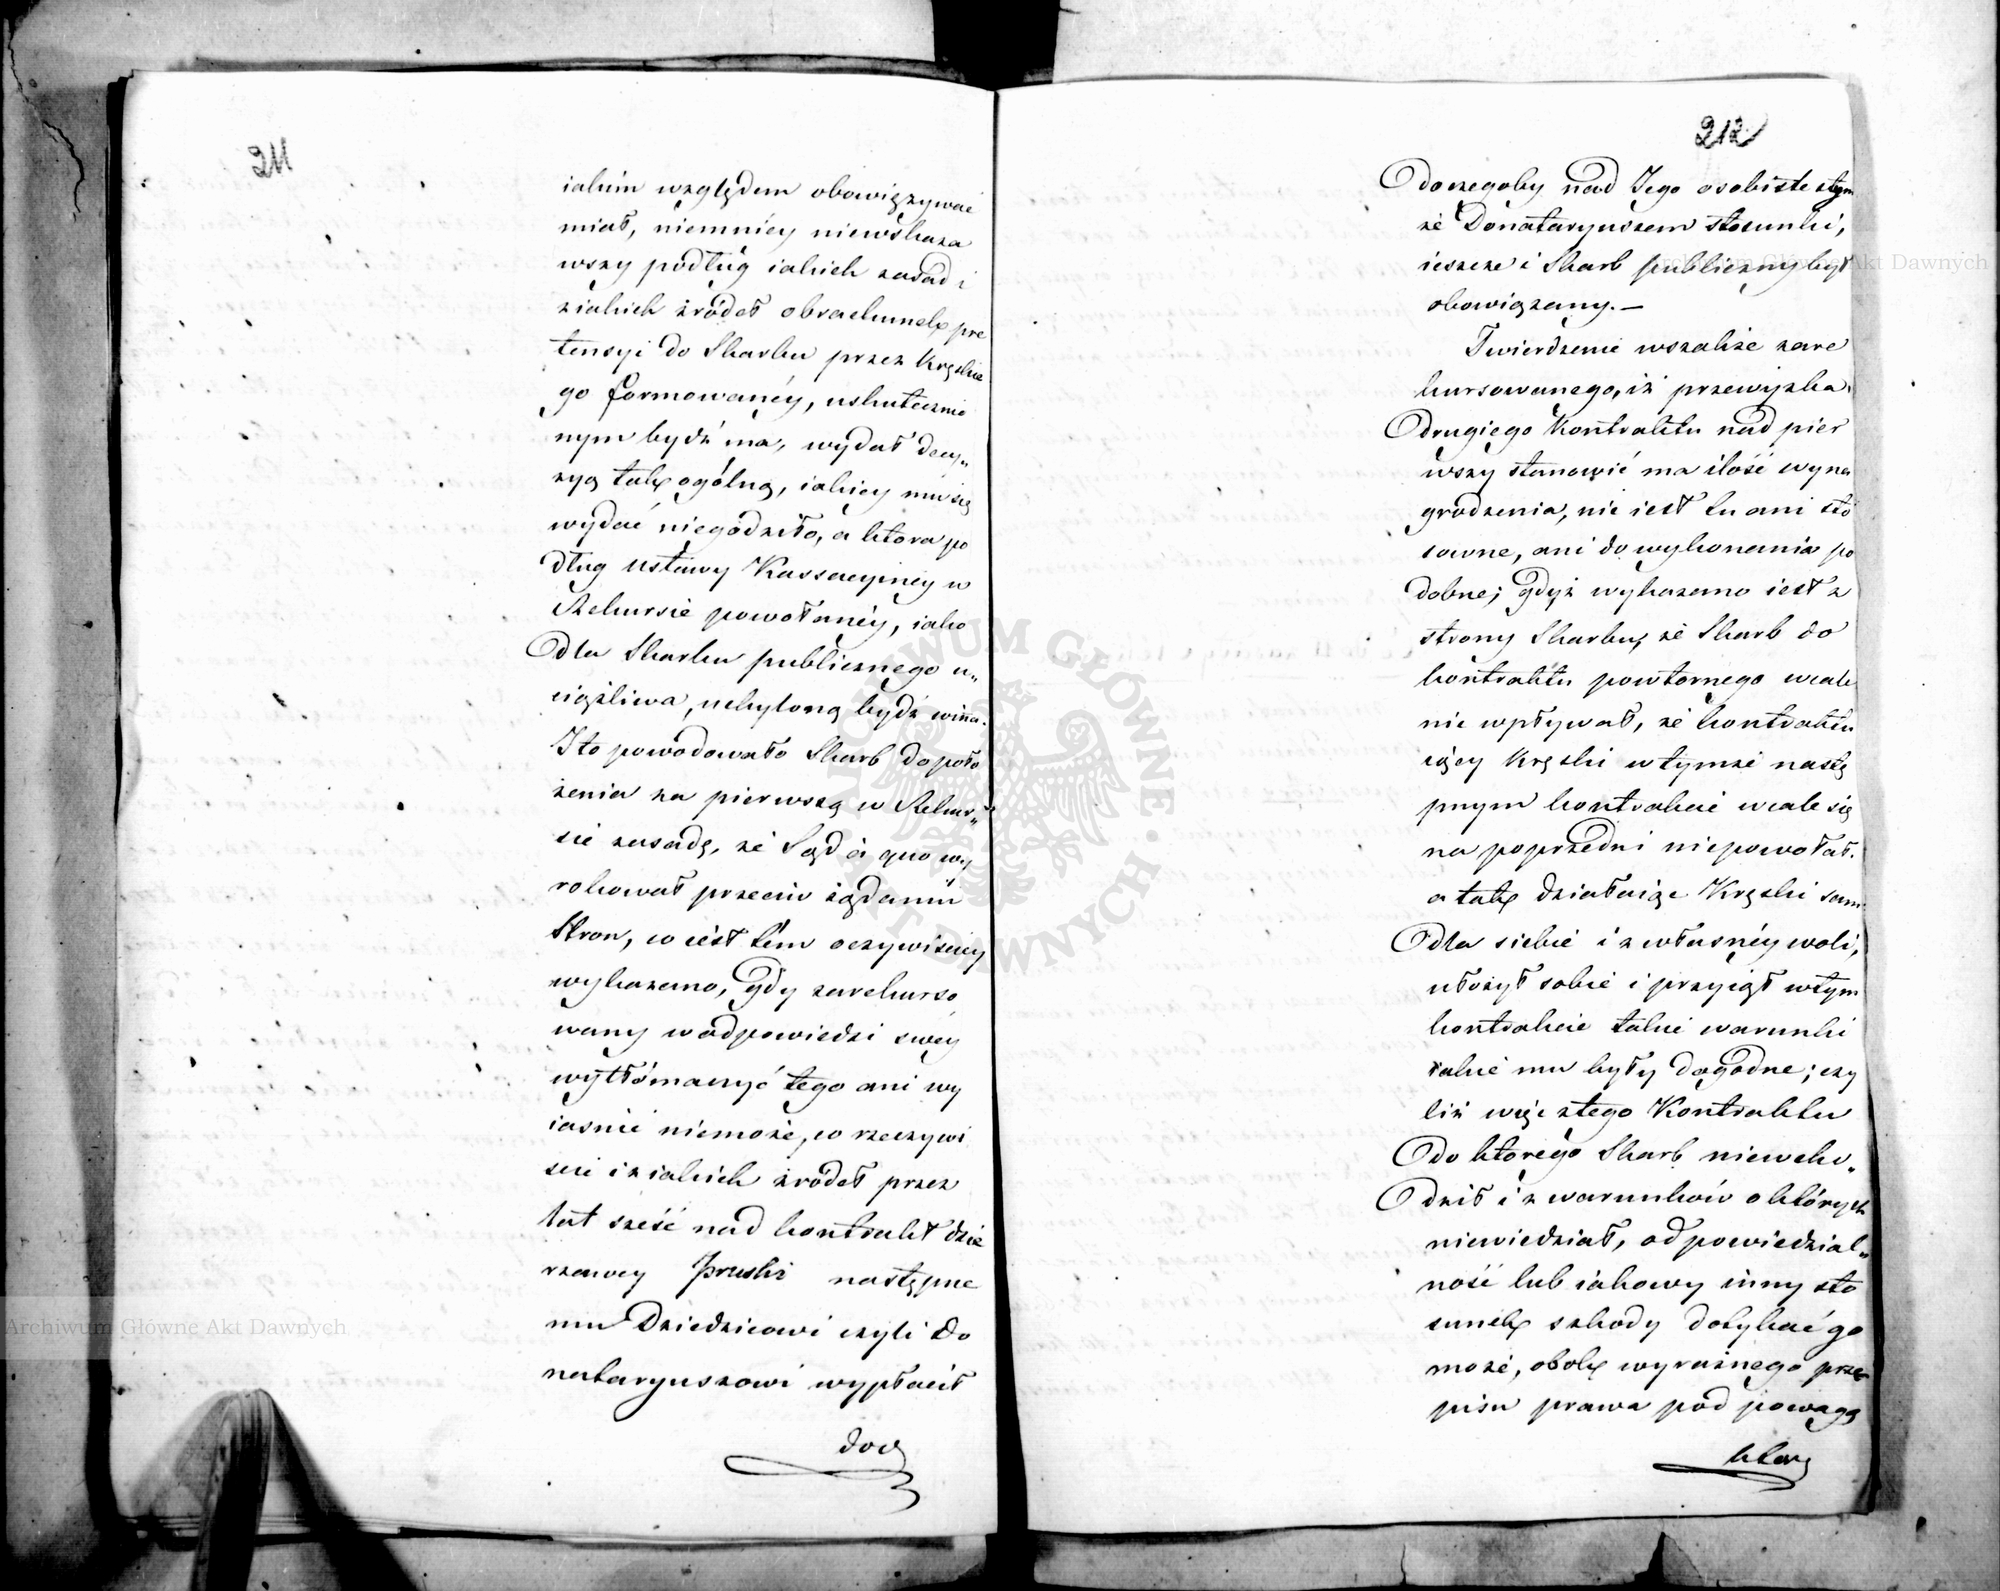 211
iakim względem obowiązywać
miał, niemniéy niewskaza
wszy podług iakich zasad i
ziakich źródeł obrachunek pre
tensyi do Skarbu przez Kręskie
go formowanéy, uskutecznio
nym bydź ma, wydał decy„
zyą tak ogólną, iakiey mu się
wydać niegodziło, a ktora po
dług Ustawy Kassacyinéy w
Rekursie powołanéy, iako
dla Skarbu publicznego u„
ciążliwa, uchyloną bydź winna.
I to powodowało Skarb do poło
żenia za pierwszą w Rekur„
sie zasadę, że Sąd à quo wy
rokował przeciw żądaniu
Stron, co iest tém oczywiściey
wykazano, gdy zarekurso
wany w odpowiedzi swéy
wytłómaczyć tego ani wy
iaśnić niemoże, co rzeczywi
ście i z iakich źrodeł przez
lat sześć nad kontrakt dzie
rzawcy Pruski następne
mu Dziedzicowi czyli do
nataryuszowi wypłacił
docz
212
do czegoby nad Jego osobiste z tym
że Donataryuszem stosunki,
ieszcze i Skarb publiczny był
obowiązany. —
Twierdzenie wszakże zare
kursowanego, iż przewyżka
drugiego Kontraktu nad pier
wszy stanowić ma ilość wyna
grodzenia, nie iest tu ani sto
sowne, ani do wykonania po
dobne; gdyż wykazano iest z
strony Skarbu, że Skarb do
kontraktu powtornego wcale
nie wpływał, że kontraktu
iący Kręski w tymże nastę
pnym kontrakcie wcale się
na poprzedni niepowołał.
a tak działaiąc Kręski sam
dla siebie i z własnéy woli,
ułożył sobie i przyiął w tym
kontrakcie takie warunki
iakie mu były dogodne; czy
liż więc z tego Kontraktu
do ktorego Skarb niewcho„
dził i z warunków o których
niewiedział, odpowiedzial„
ność lub iakowy inny sto
sunek szkody dotykać go
może, obok wyraźnego prze
pisu prawa pod powagą
Archiwum Główne Akt Dawnych
Archiwum Główne Akt Dawnych
ARCHIWUM GŁÓWNE AKT DAWNYCH